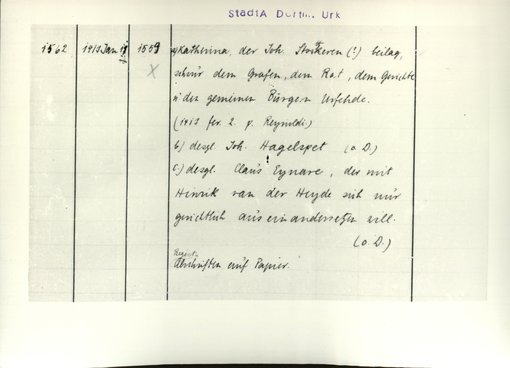 StadtA Dortm. Urk
1562 1419 Jan 17 1559 a) Katherina, der Joh. Storkeren (?) beilag,
X schwör dem Grafen, dem Rat, dem Gerichte
u. den gemeinen Bürgen Urfehde.
(1419 fer. 2. p. Reynoldi.)
b) desgl. Joh. Hagelspet (o D.)
c) desgl. Claus Eynare, der mit
Hinrik van der Heyde sich nur
gerichtlich auseinandersetzen will.
(o D.)
Abschriften auf Papier.